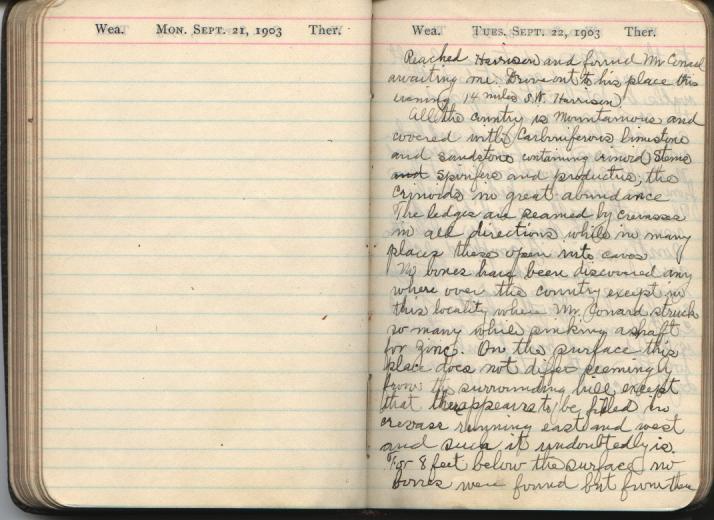 Wea. MON. SEPT. 21, 1903 Ther.
Wea. TUES. SEPT. 22, 1903 Ther.
Reached Harrison and found Mr Conard
awaiting me. Drive out to his place this
evening 14 miles S.W. Harrison
All the country is mountainous and
covered with Carboniferous limestone
and sandstone containing crinoid stems
and spirifers and productus, the
Crinoids in great abundance
The ledges are seamed by crevasses
in all directions while in many
places these open into caves
No bones have been discovered any
where over the country except in
this locality where Mr. Conard struck
so many while sinking a shaft
for zinc. On the surface this
place does not differ seemingly
from the surrounding hill, except
that there appears to be filled in
crevase running east and west
and such it undoubtedly is.
For 8 feet below the surface no
bones were found but from there